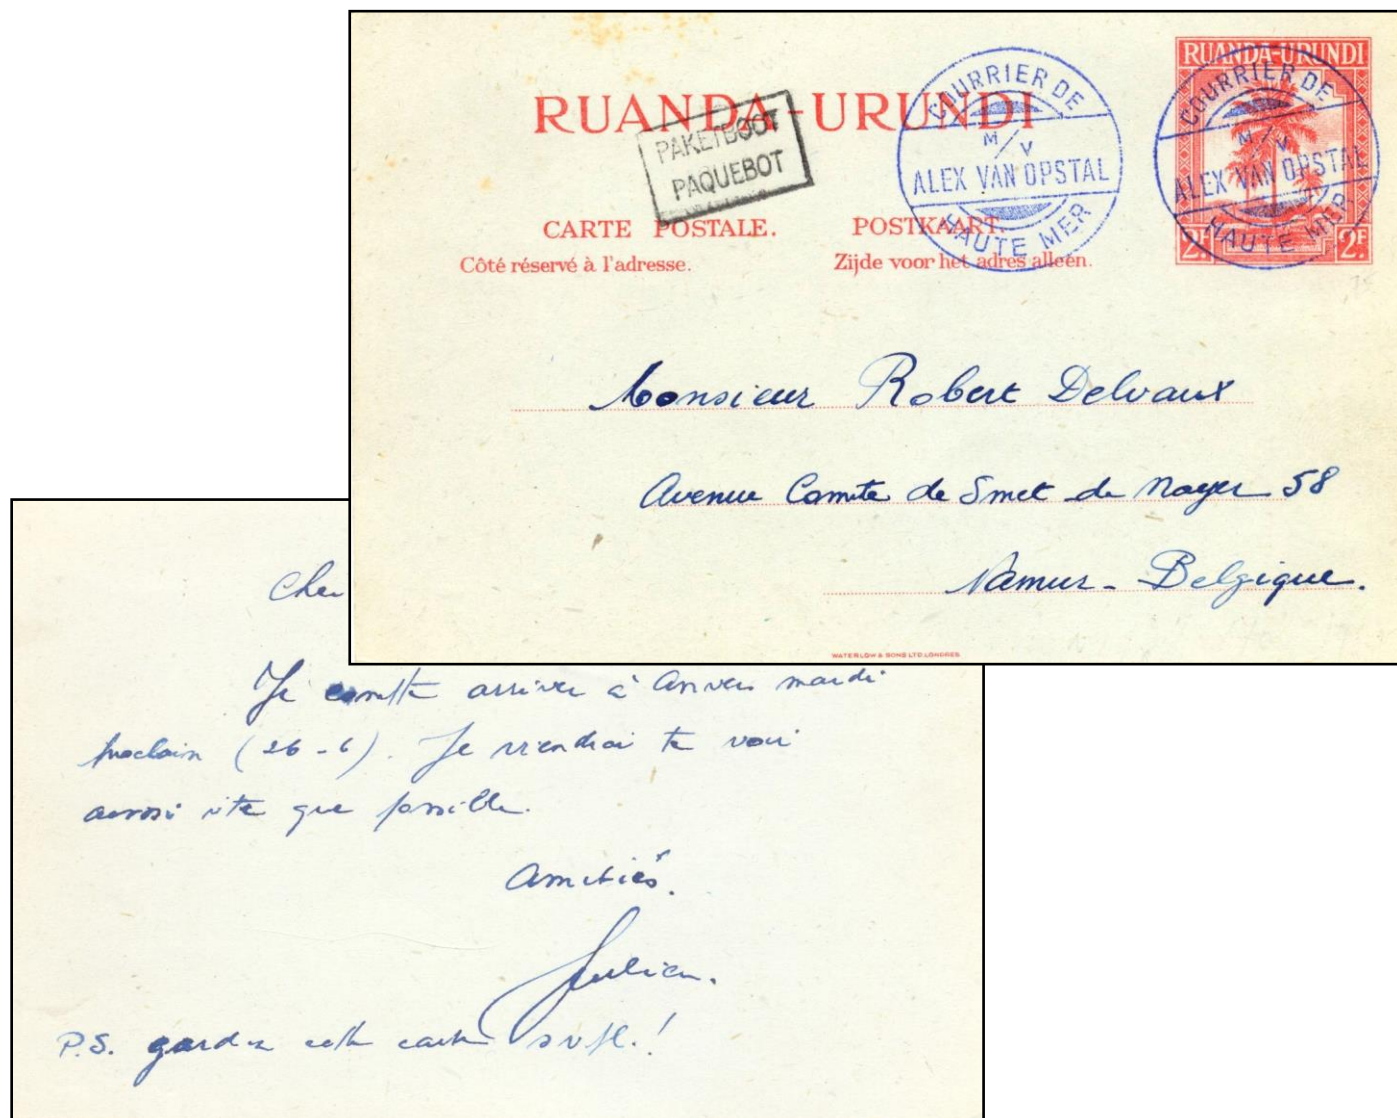 RUANDA-URUNDI
RUANDA-URUNDI
COURRIER DE
M/V
ALEX VAN OPSTAL
HAUTE MER
COURRIER DE
M/V
ALEX VAN OPSTAL
HAUTE MER
PAKETBOOT
PAQUEBOT
CARTE POSTALE. POSTKAART.
Côté réservé à l'adresse. Zijde voor het adres alleen.
2F 2F
Monsieur Robert Delvaux
Avenue Comte de Smet de Nayer 58
Namur - Belgique.
WATERLOW & SONS LTD, LONDRES
Cher
Je compte arriver à Anvers mardi
prochain (26-6). Je viendrai te voir
aussi vite que possible.
Amitiés.
Julien.
P.S. gardez cette carte svpl.!